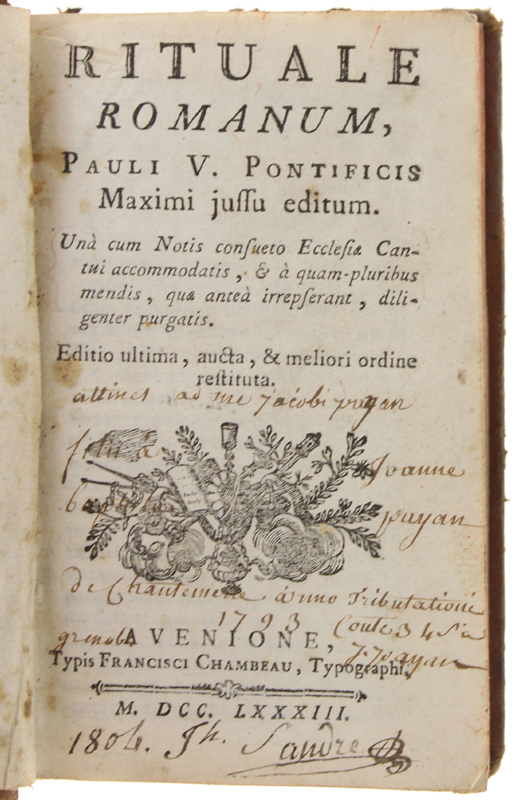 RITUALE
ROMANUM,
PAULI V. PONTIFICIS
Maximi juſſu editum.
Unà cum Notis conſueto Eccleſiæ Can-
tui accommodatis, & à quam-pluribus
mendis, quæ anteà irrepſerant, dili-
genter purgatis.
Editio ultima, aucta, & meliori ordine
reſtituta.
attinet ad me jacobi payan
filii à Joanne
baptista payan
de Chantemerle anno tributationis
1793 Coute 34 s
AVENIONE,
Typis FRANCISCI CHAMBEAU, Typographi.
M. DCC. LXXXIII.
1804. Jh. Sandre